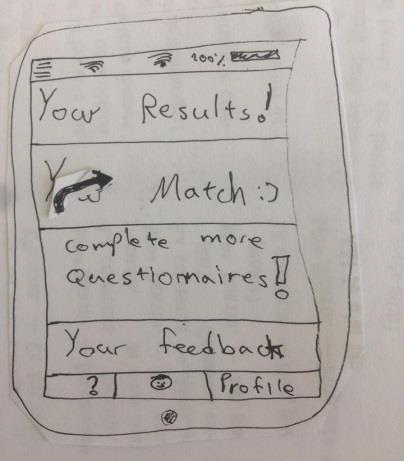 100%
Your Results!
Match :)
complete more
Questionnaires!
Your feedback
? Profile